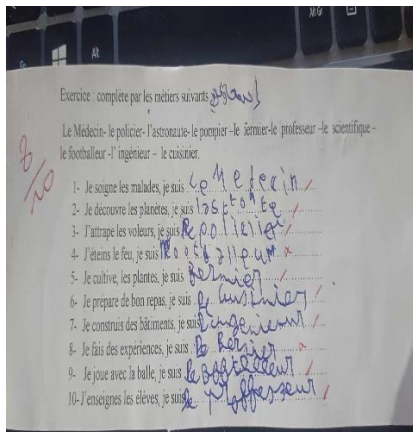 Alt
Exercice : complète par les métiers suivants
Le Médecin- le policier- l'astronaute- le pompier -le fermier-le professeur -le scientifique -
le footballeur -l' ingénieur – le cuisinier.
8/10
1- Je soigne les malades, je suis Le Medecin
2- Je découvre les planètes, je suis
3- J'attrape les voleurs, je suis le policier
4- J'éteins le feu, je suis
5- Je cultive, les plantes, je suis
6- Je prépare de bon repas, je suis le cuisinier
7- Je construis des bâtiments, je suis l'ingenieur
8- Je fais des expériences, je suis
9- Je joue avec la balle, je suis
10-J'enseignes les élèves, je suis